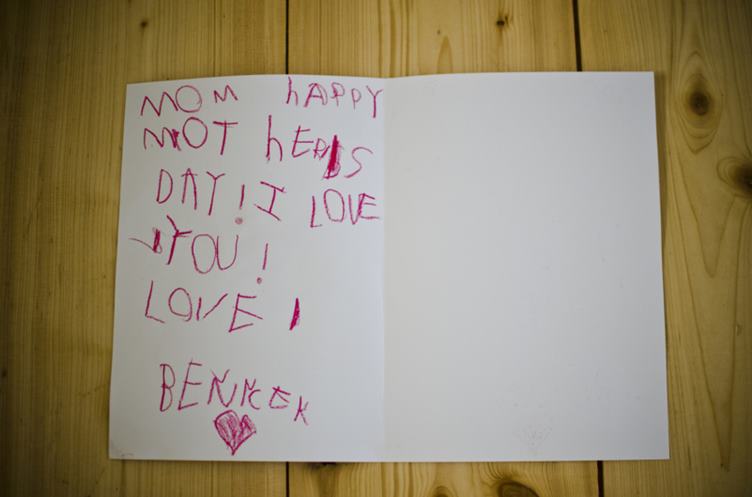 MOM hAPPY
MOT hERS
DAY! I LOVE
YOU!
LOVE